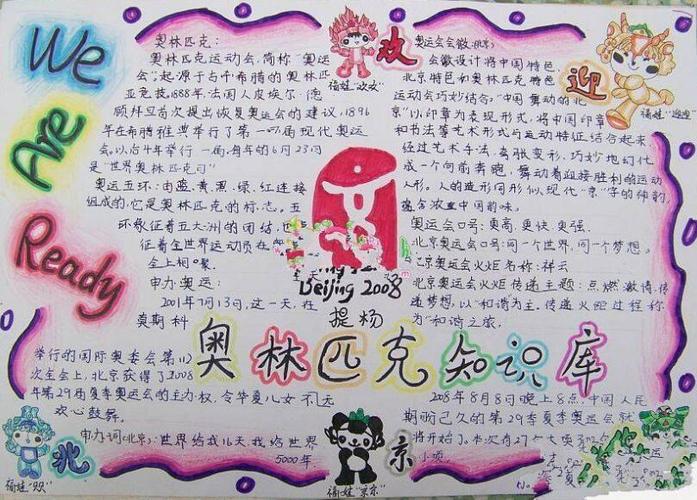 We
Are
Ready
奥林匹克：
奥林匹克运动会，简称“奥运
会”，起源于古希腊的奥林匹
亚竞技，1888年，法国人皮埃尔·德
顾拜旦首次提出恢复奥运会的建议，1896
年在希腊雅典举行了第一届现代奥运
会，以后4年举行一届，每年的6月23日
是“世界奥林匹克日”
奥运五环：由蓝、黄、黑、绿、红连接
组成的，它是奥林匹克的标志，五
环象征着五大洲的团结，
征着全世界运动员在
会上相
申办奥运：
2001年7月13日，这一天，在
莫斯科
举行的国际奥委会第112
次全会上，北京获得了2008
年第29届夏季奥运会的主办权，令华夏儿女不
欢心鼓舞。
申办词（北京）：世界给我16天，我给世界
5000年
福娃“欢欢”
欢
迎
福娃“迎迎”
Beijing 2008
提杨
奥林匹克知识库
奥运会会徽：（北京）
会徽设计将中国特色、
北京特色和奥林匹克特色
运动会巧妙结合，“中国舞动的北
京”以印章为表现形式，将中国印章
和书法等艺术形式与运动特征结合起来
经过艺术手法，夸张变形，巧妙地幻化
成一个向前奔跑，舞动着迎接胜利的运动
人形。人的造型同形似现代“京”字的神韵，
蕴含浓重中国韵味。
奥运会口号：更高、更快、更强。
北京奥运会口号：同一个世界，同一个梦想。
北京奥运会火炬名称：祥云
北京奥运会火炬传递主题：点燃激情，传
递梦想，以“和谐”为主，传递火炬过程称
为“和谐之旅。
208年8月8日晚上8点，中国人民
期盼已久的第29季夏季奥运会就
将开始了，本次有27个大项，302个
小项，
北
福娃“贝贝”
京
福娃“京京”